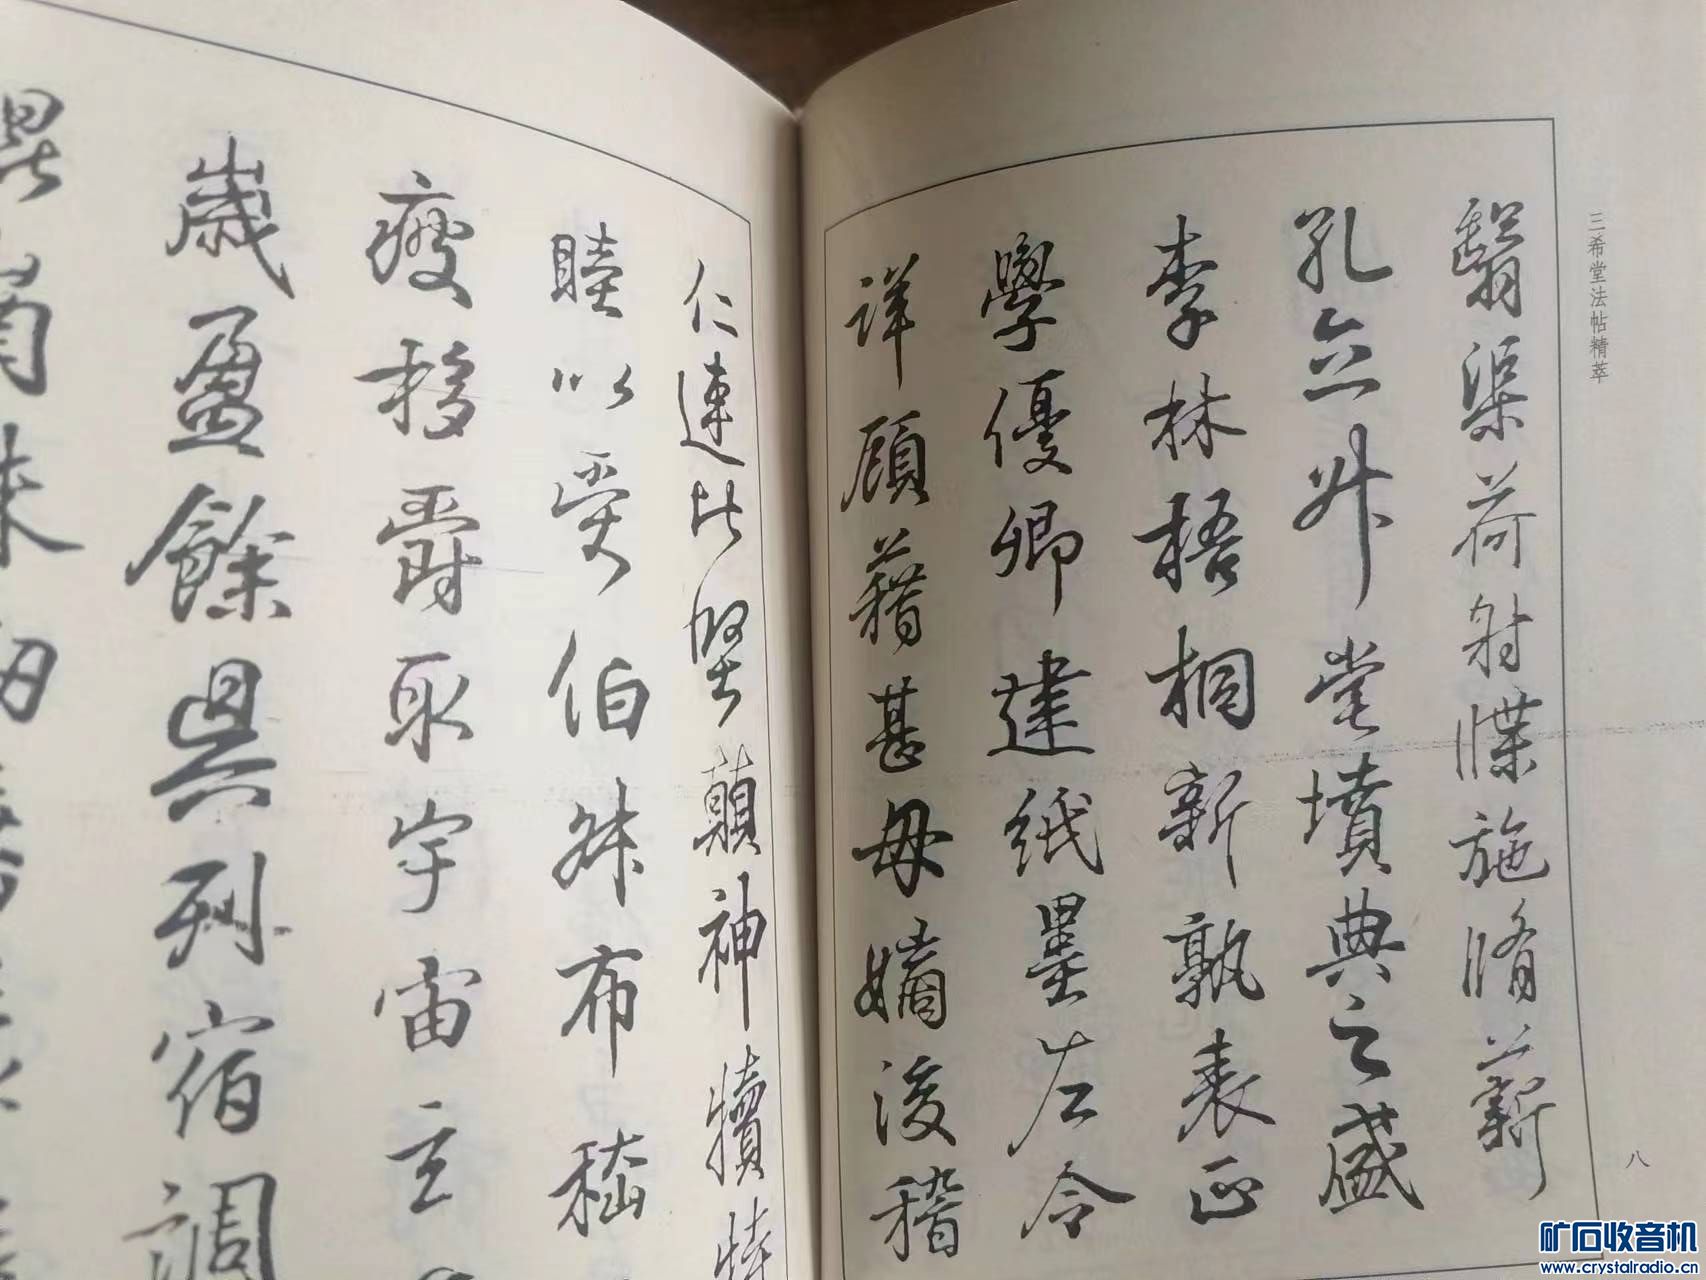 三希堂法帖精萃
翳渠荷射牒施脩薪
孔立升堂墳典之盛
李林梧桐新孰表正
學優卿建紙墨左令
詳顧藉甚毋嫡後稽
八
仁連比堅顛神犢特
睦以受伯叔布嵇
疲移爵取宇宙主
歲盈餘具列宿調
矿石收音机
www.crystalradio.cn